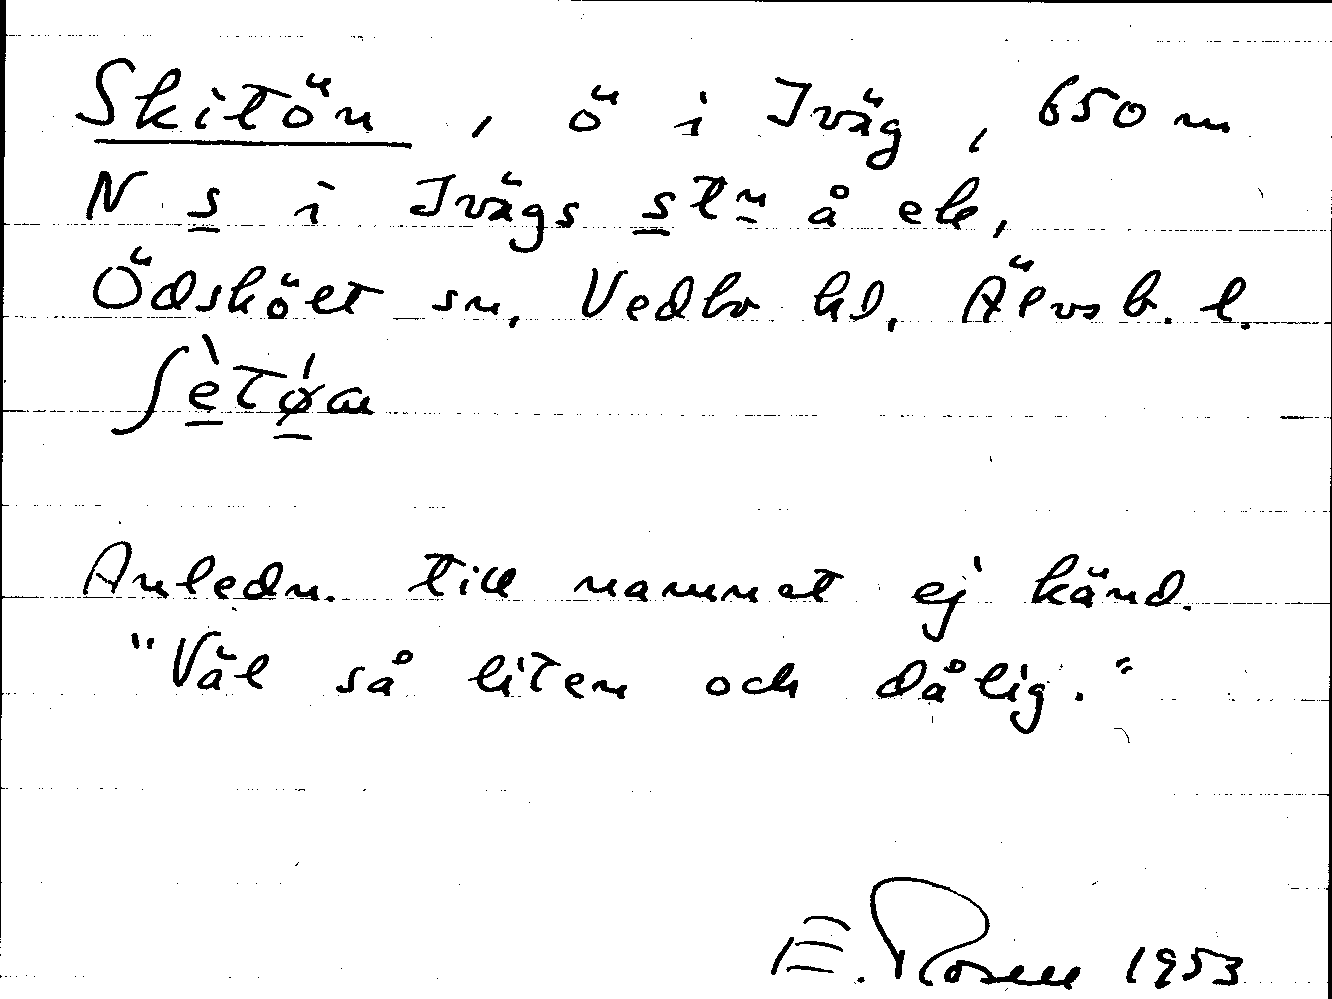 Skitön, ö i Iväg, 650 m
N s i Ivägs stn å ek,
Ödskölt sn, Vedbo hd, Älvsb. l.
ʃètǿn
Anledn. till namnet ej känd.
"Väl så liten och dålig."
E. Rosell 1953